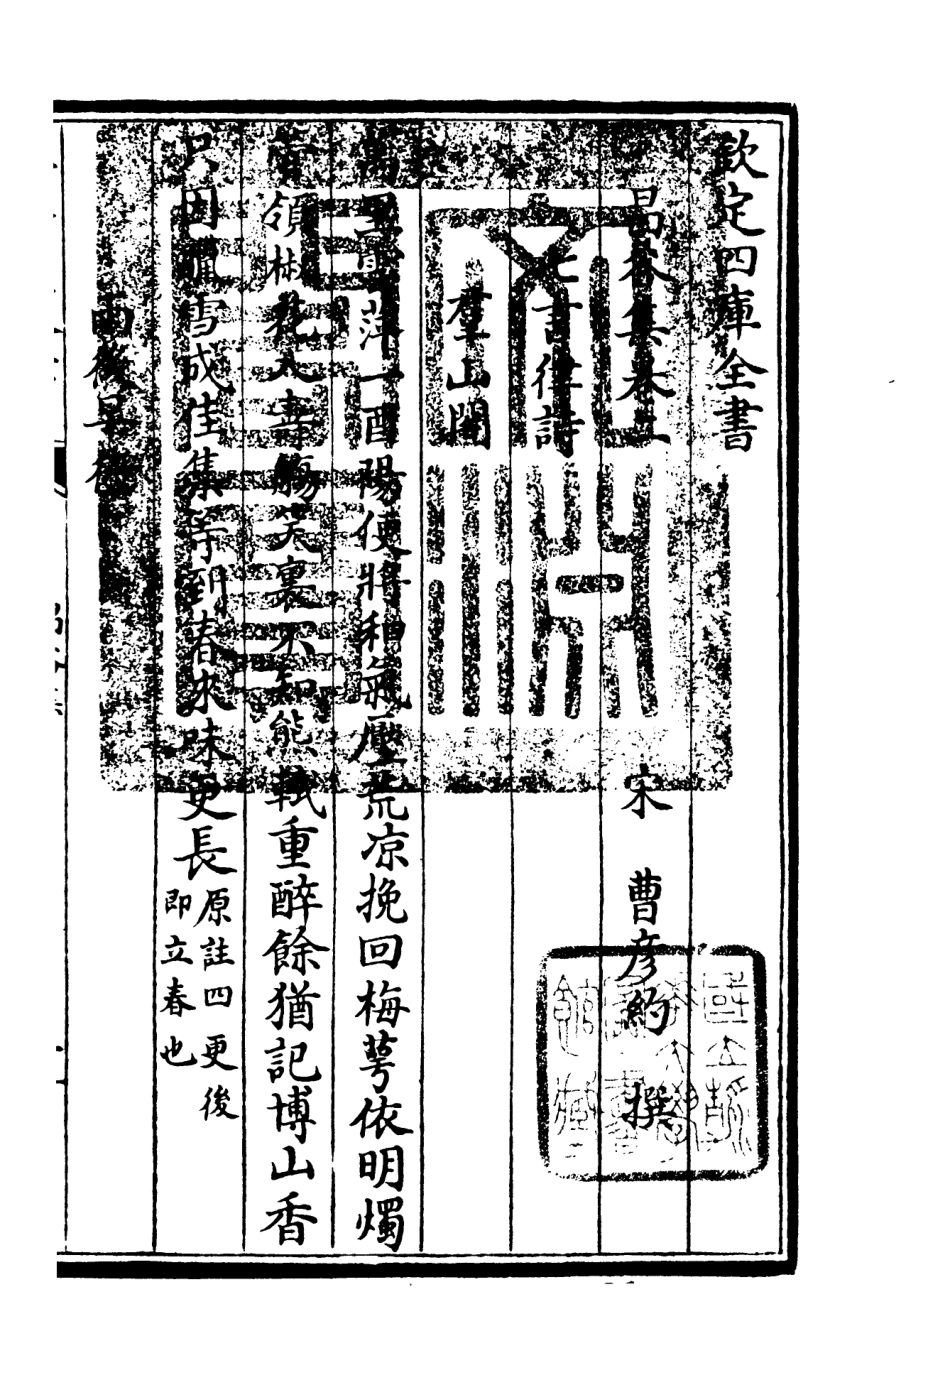 欽定四庫全書
昌谷集卷二
宋 曹彦約 撰
七言律詩
羣山閣
萬里飄萍一酉陽便將和氣壓荒凉挽回梅萼依明燭
領椒花入壽觴笑裏不知熊軾重醉餘猶記博山香
只因臘雪成佳集等到春來味更長原註四更後即立春也
雨後早